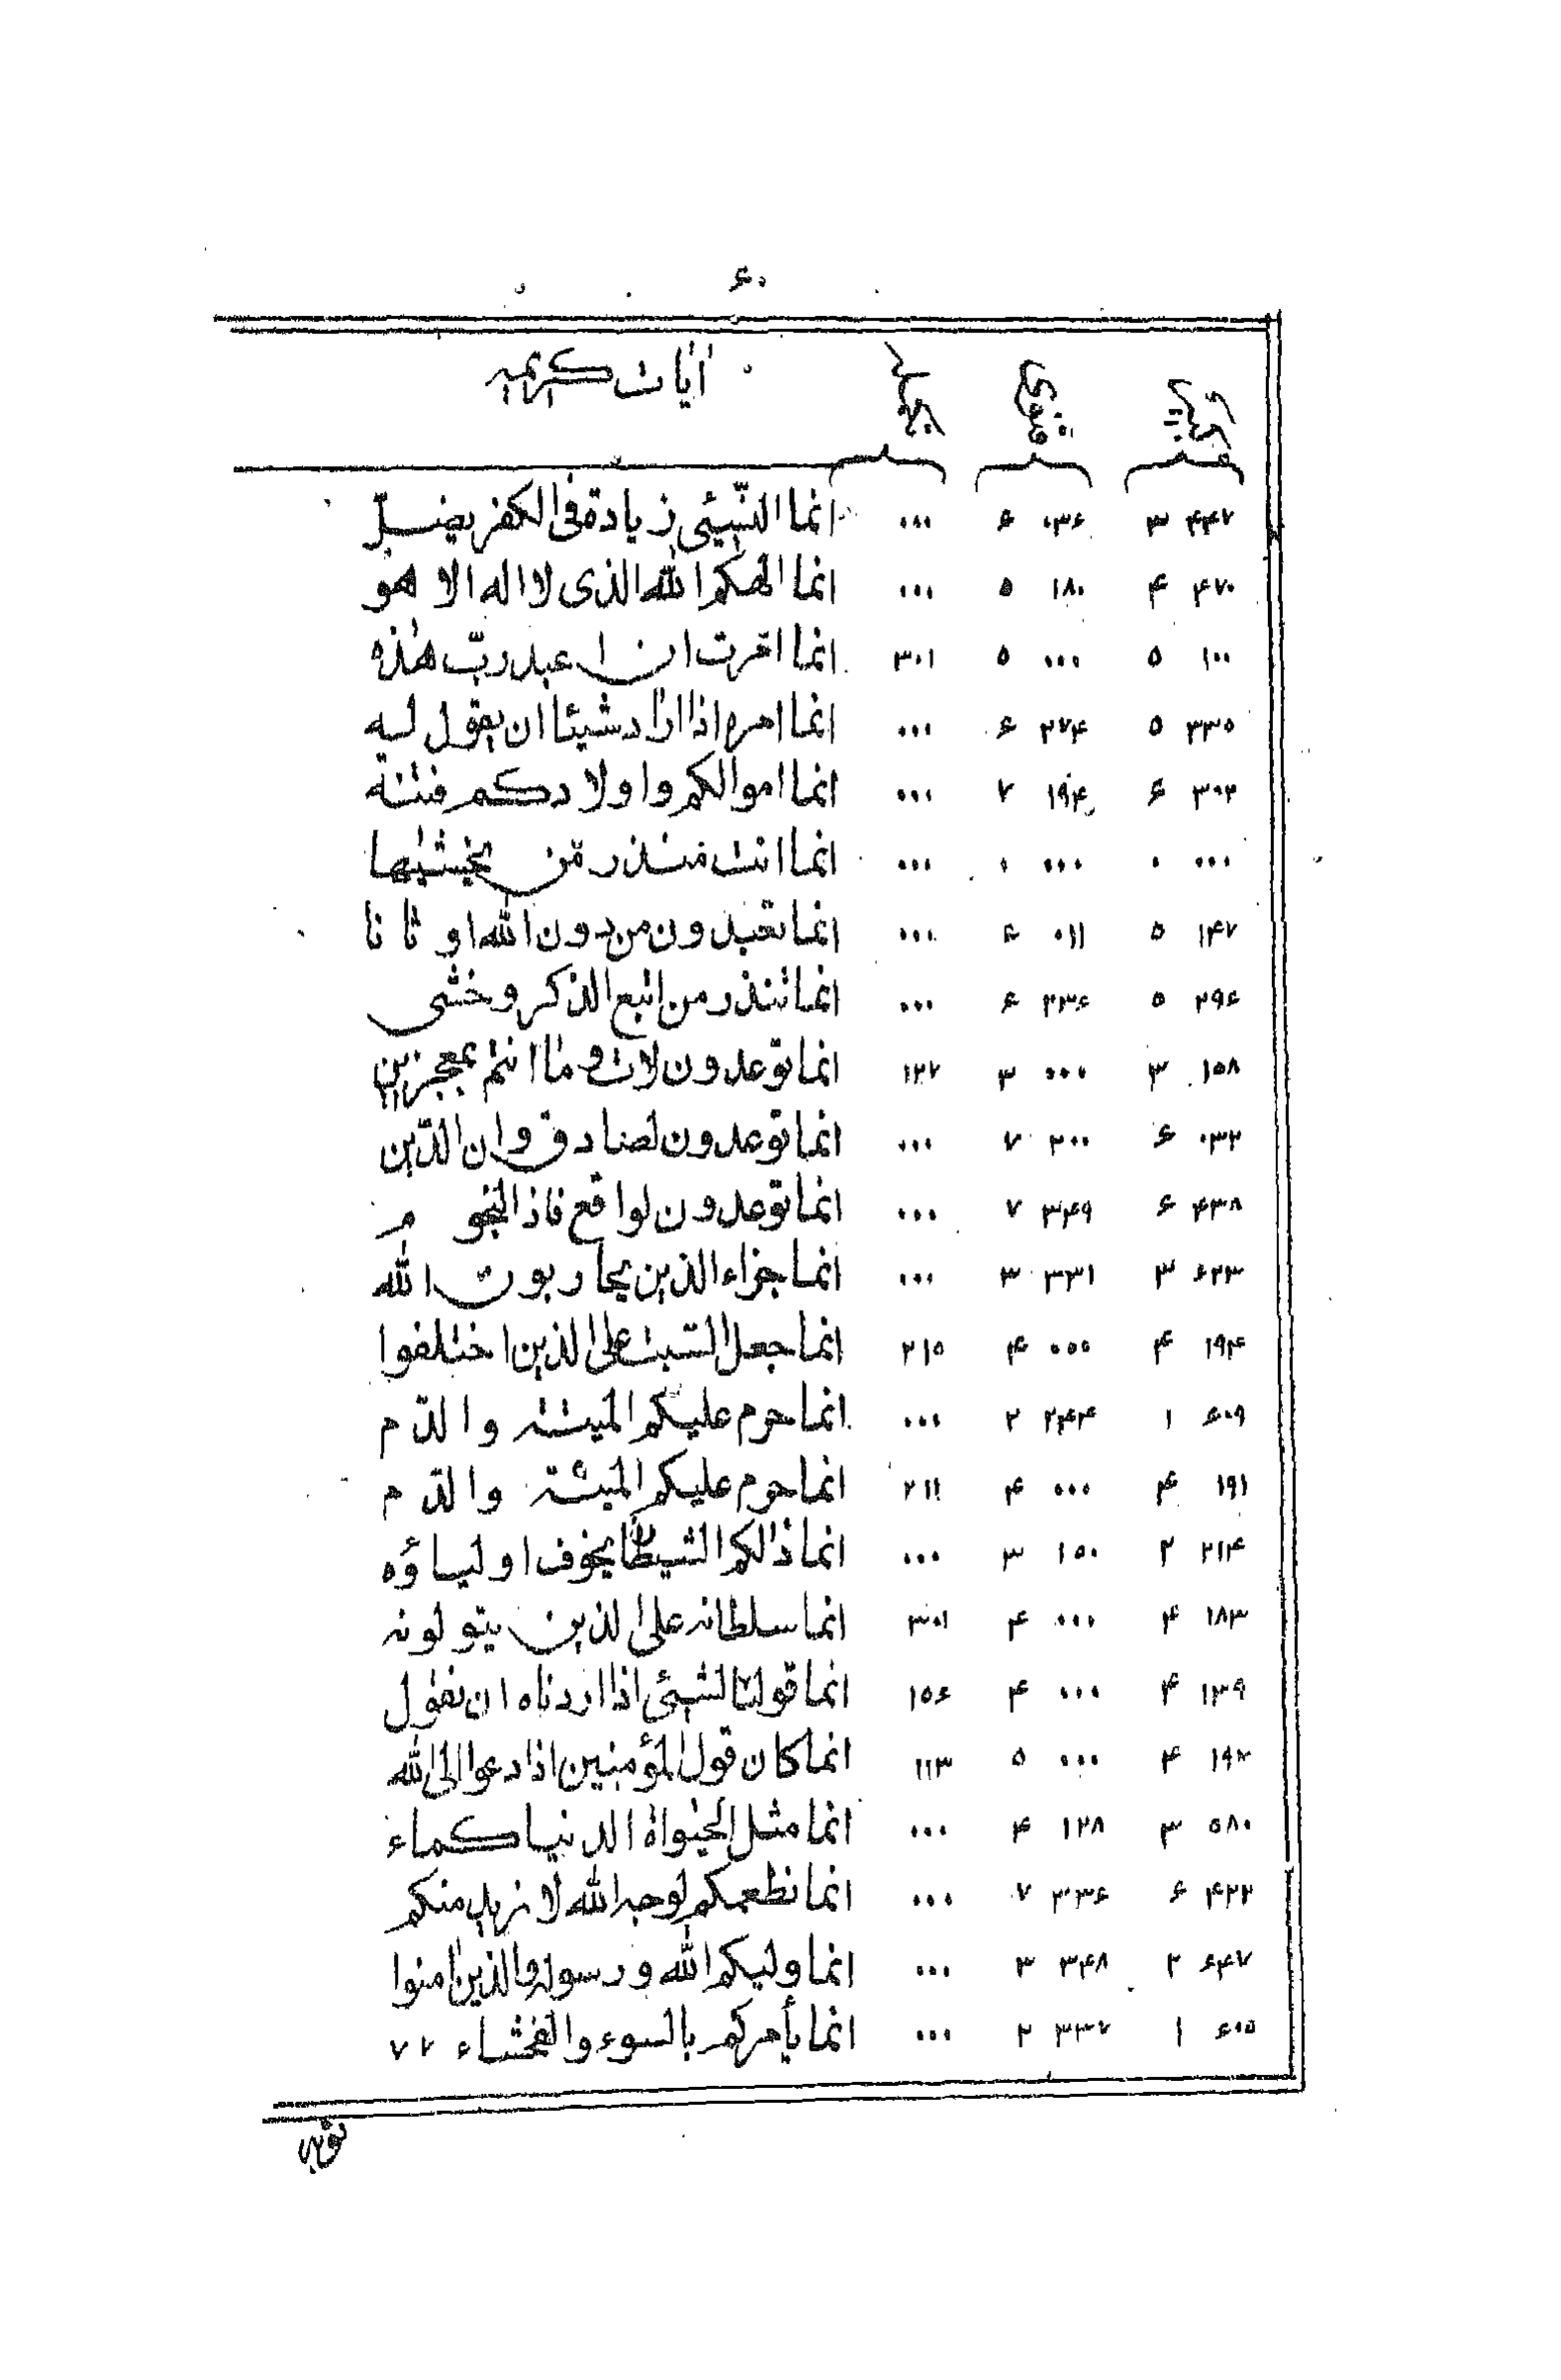 ۶۰
اٰیات كریمہ
۴۴۷ ۳ ۰۳۶ ۶ ۰۰۰ انما النّسیئی زیادة فی الكفر یضلّ
۴۷۰ ۴ ۱۸۰ ۵ ۰۰۰ انما الهكم الله الذی لا اله الا هو
۱۰۰ ۵ ۰۰۰ ۵ ۳۰۱ انما امرت ان اعبد ربّ هٰذه
۳۳۵ ۵ ۲۷۴ ۶ ۰۰۰ انما امره اذا اراد شیئا ان یقول له
۳۰۲ ۶ ۱۹۴ ۷ ۰۰۰ انما اموالكم واولادكم فتنة
۰۰۰ ۰ ۰۰۰ ۰ ۰۰۰ انما انت منذر مّن یخشیٰها
۱۴۷ ۵ ۰۱۱ ۶ ۰۰۰ انما تعبدون من دون الله اوثانا
۲۹۶ ۵ ۲۳۶ ۶ ۰۰۰ انما تنذر من اتبع الذكر وخشی
۱۵۸ ۳ ۰۰۰ ۳ ۱۲۷ انما توعدون لات وما انتم بمعجزین
۰۳۲ ۶ ۲۰۰ ۷ ۰۰۰ انما توعدون لصادق وان الدّین
۴۳۸ ۶ ۳۴۹ ۷ ۰۰۰ انما توعدون لواقع فاذا النجوم
۶۲۳ ۲ ۳۳۱ ۳ ۰۰۰ انما جزاء الذین یحاربون الله
۱۹۴ ۴ ۰۰۰ ۴ ۲۱۵ انما جعل السّبت علی الذین اختلفوا
۶۰۹ ۱ ۲۴۴ ۲ ۰۰۰ انما حرم علیكم المیتة والدّم
۱۹۱ ۴ ۰۰۰ ۴ ۲۱۱ انما حرم علیكم المیتة والدّم
۲۱۴ ۲ ۱۵۰ ۳ ۰۰۰ انما ذالكم الشیطان یخوف اولیاؤه
۱۸۳ ۴ ۰۰۰ ۴ ۳۰۱ انما سلطانه علی الذین یتولونه
۱۳۹ ۴ ۰۰۰ ۴ ۱۵۶ انما قولنا لشیئی اذا اردناه ان نقول
۱۹۲ ۴ ۰۰۰ ۵ ۱۱۳ انما كان قول المؤمنین اذا دعوا الی الله
۵۸۰ ۳ ۱۲۸ ۴ ۰۰۰ انما مثل الحیواة الدنیا كماء
۴۲۲ ۶ ۳۳۶ ۷ ۰۰۰ انما نطعمكم لوجه الله لا نرید منكم
۶۴۷ ۲ ۳۴۸ ۳ ۰۰۰ انما ولیكم الله ورسوله والذین اٰمنوا
۶۰۵ ۱ ۲۳۷ ۲ ۰۰۰ انما یأمركم بالسوء والفحشاء ۷۲